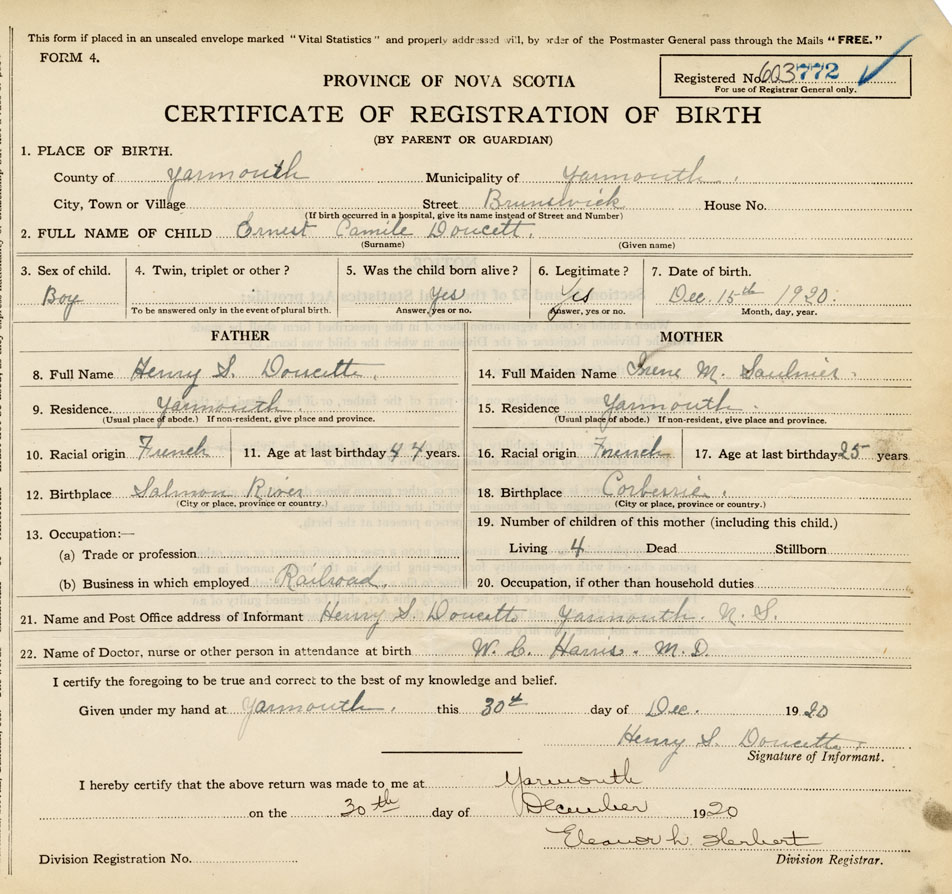 This form if placed in an unsealed envelope marked "Vital Statistics" and properly addressed will, by order of the Postmaster General pass through the Mails "FREE."
FORM 4.
Registered No. 603772
For use of Registrar General only.
PROVINCE OF NOVA SCOTIA
CERTIFICATE OF REGISTRATION OF BIRTH
(BY PARENT OR GUARDIAN)
1. PLACE OF BIRTH.
County of Yarmouth Municipality of Yarmouth.
City, Town or Village Street Brunswick House No.
(If birth occurred in a hospital, give its name instead of Street and Number)
2. FULL NAME OF CHILD Ernest Camile Doucett.
(Surname) (Given name)
3. Sex of child. 4. Twin, triplet or other? 5. Was the child born alive? 6. Legitimate? 7. Date of birth.
Boy Yes Yes Dec. 15th 1920.
To be answered only in the event of plural birth. Answer, yes or no. Answer, yes or no. Month, day, year.
FATHER MOTHER
8. Full Name Henry S. Doucette. 14. Full Maiden Name Irene M. Saulnier.
9. Residence. Yarmouth. 15. Residence Yarmouth.
(Usual place of abode.) If non-resident, give place and province. (Usual place of abode.) If non-resident, give place and province.
10. Racial origin French 11. Age at last birthday 44 years. 16. Racial origin French 17. Age at last birthday 25 years
12. Birthplace Salmon River 18. Birthplace Corberrie.
(City or place, province or country.) (City or place, province or country.)
13. Occupation:— 19. Number of children of this mother (including this child.)
(a) Trade or profession Living 4 Dead Stillborn
(b) Business in which employed Railroad. 20. Occupation, if other than household duties
21. Name and Post Office address of Informant Henry S. Doucette Yarmouth. N. S.
22. Name of Doctor, nurse or other person in attendance at birth W. C. Harris. M. D.
I certify the foregoing to be true and correct to the best of my knowledge and belief.
Given under my hand at Yarmouth. this 30th day of Dec. 1920
Henry S. Doucette.
Signature of Informant.
I hereby certify that the above return was made to me at Yarmouth
on the 30th day of December 1920
Eleanor L. Herbert
Division Registration No. Division Registrar.